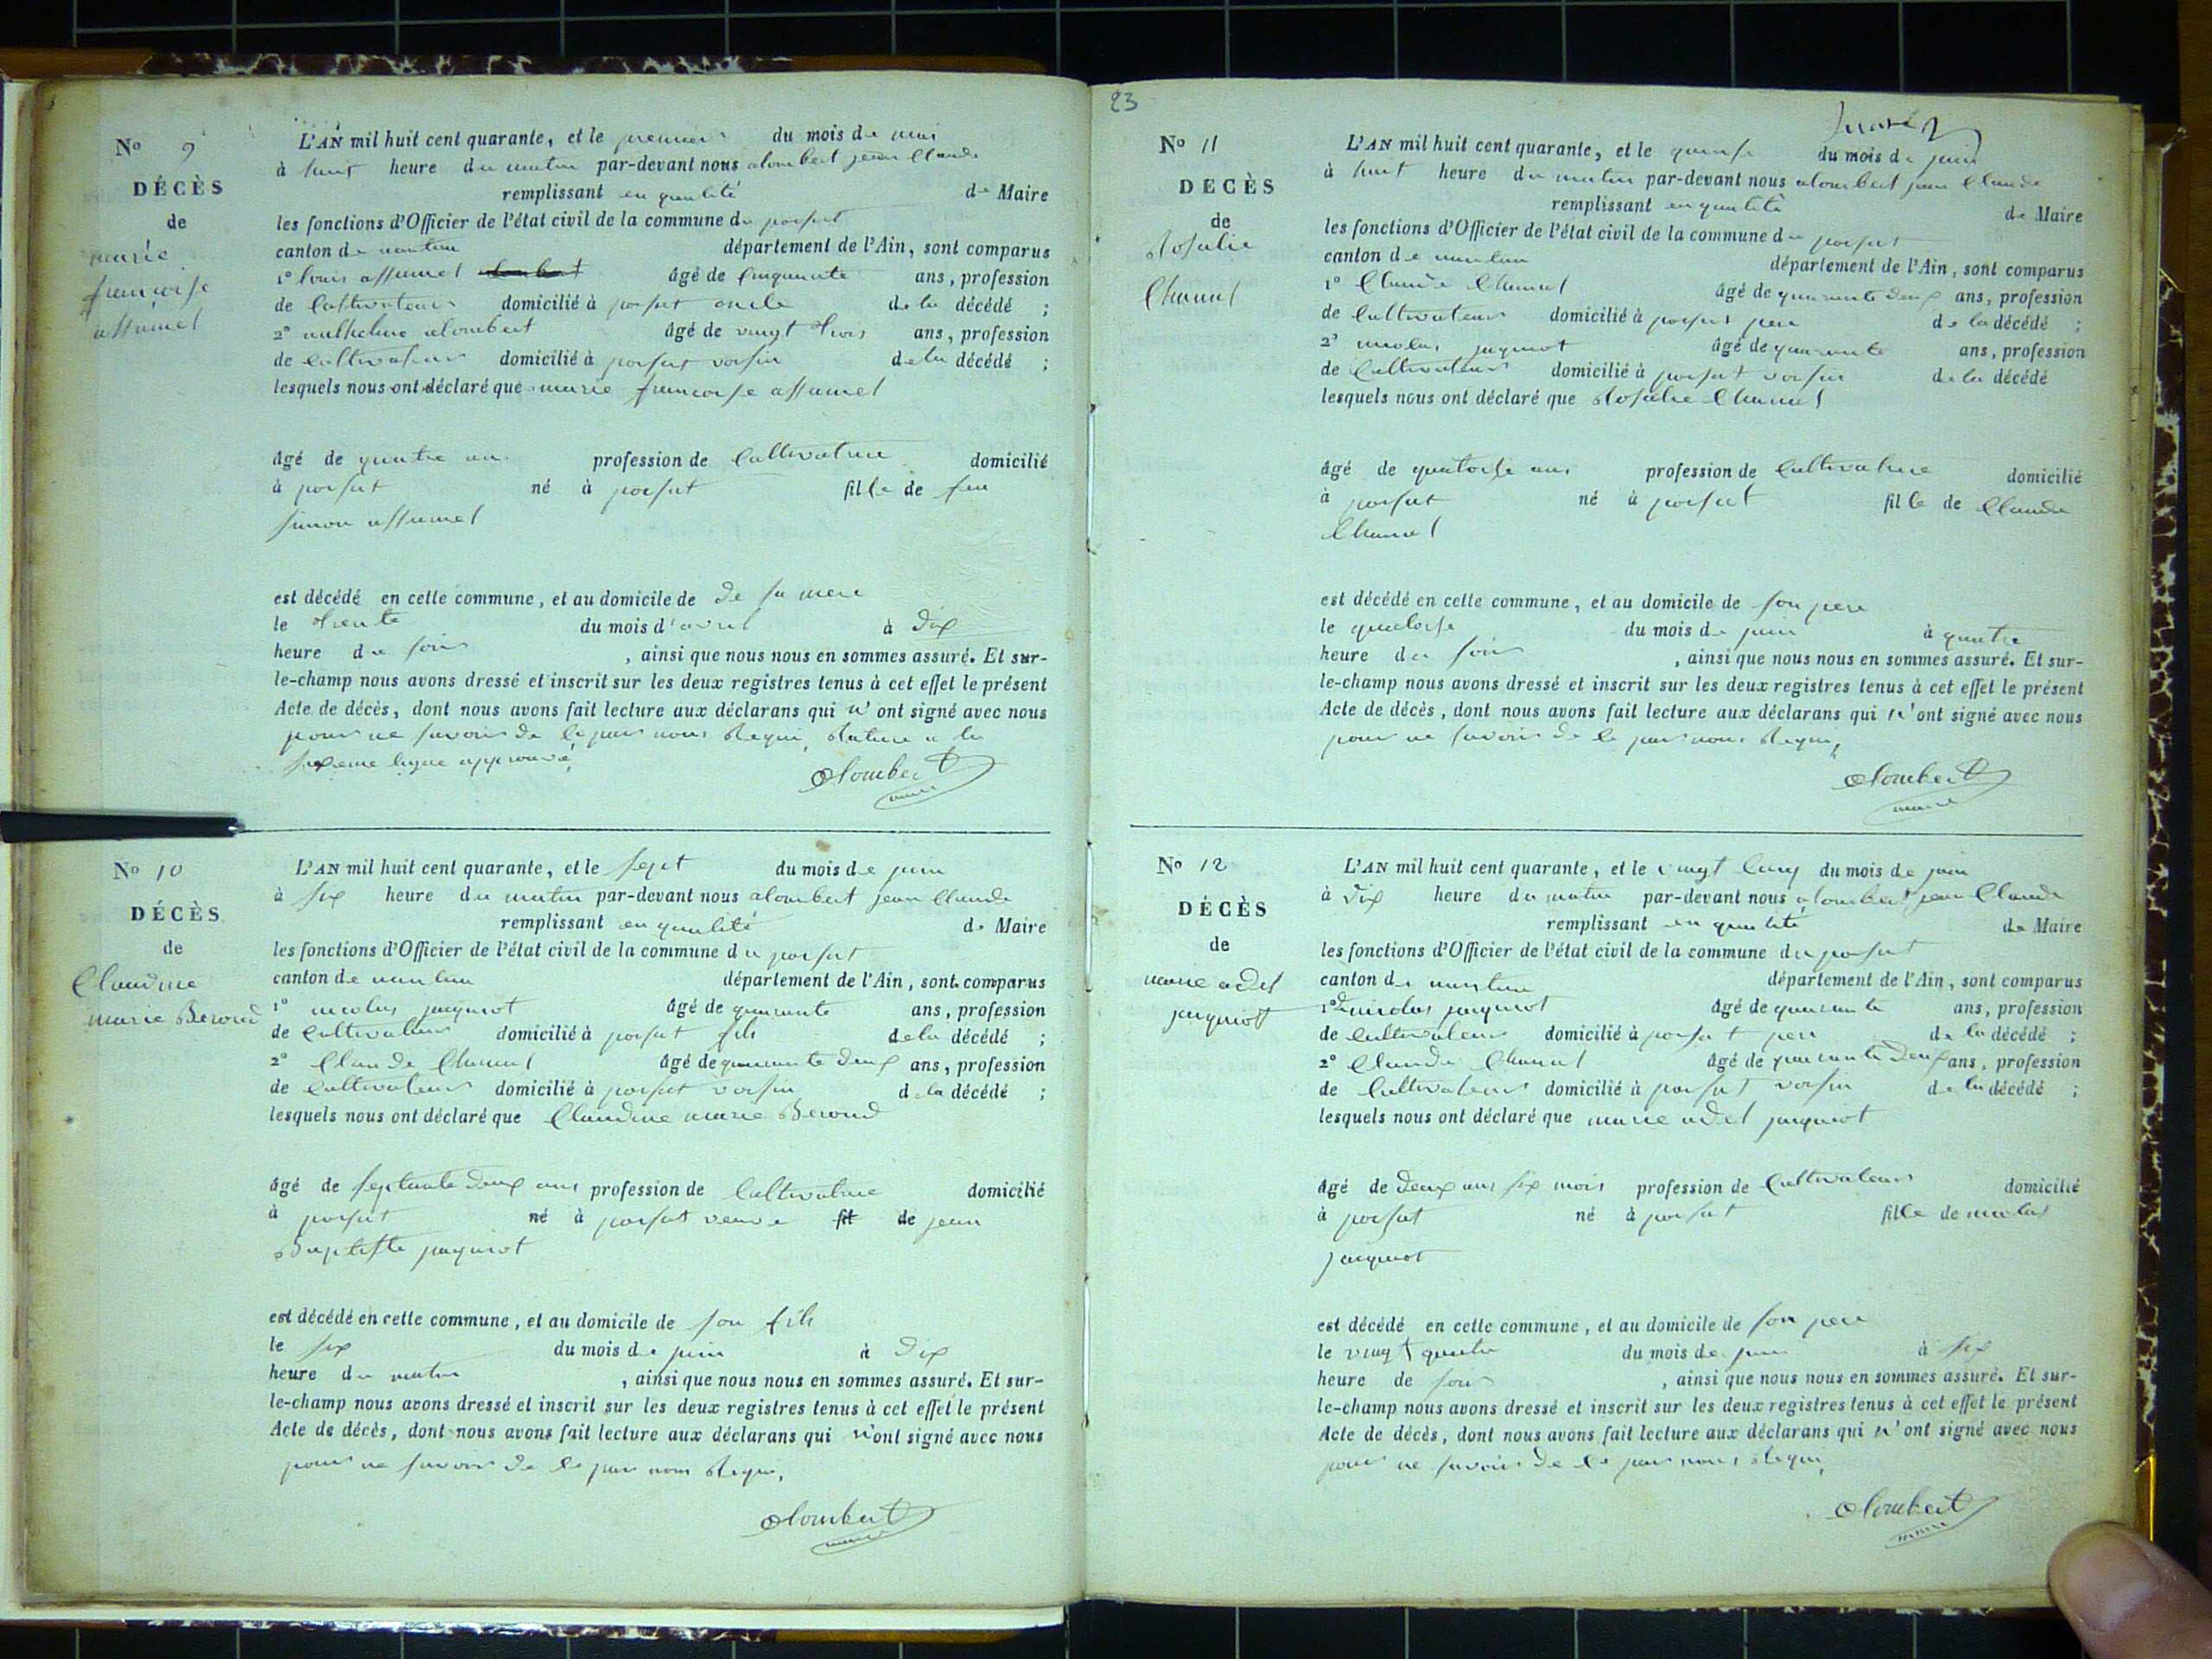 No 9
DÉCÈS
de
marie
françoise
assumel
L'AN mil huit cent quarante, et le premier du mois de mai
à huit heure du matin par-devant nous alombert jean Claude
remplissant en qualité de Maire
les fonctions d'Officier de l'état civil de la commune du poisat
canton de nantua département de l'Ain, sont comparus
1° louis assumel âgé de Cinquante ans, profession
de Cultivateur domicilié à poisat oncle de la décédé ;
2° anthelme alombert âgé de vingt trois ans, profession
de Cultivateur domicilié à poisat voisin de la décédé ;
lesquels nous ont déclaré que marie françoise assumel
âgé de quatre an profession de Cultivatrice domicilié
à poisat né à poisat fille de feu
simon assumel
est décédé en cette commune, et au domicile de de sa mere
le trente du mois d'avril à dix
heure du soir , ainsi que nous nous en sommes assuré. Et sur-
le-champ nous avons dressé et inscrit sur les deux registres tenus à cet effet le présent
Acte de décès, dont nous avons fait lecture aux déclarans qui n'ont signé avec nous
pour ne savoir de le par nous Requi, Rature a la
sixieme ligne approuvé
alombert
maire
No 10
DÉCÈS
de
Claudine
marie Beroud
L'AN mil huit cent quarante, et le sept du mois de juin
à six heure du matin par-devant nous alombert jean Claude
remplissant en qualité de Maire
les fonctions d'Officier de l'état civil de la commune du poisat
canton de nantua département de l'Ain, sont comparus
1° nicolas juquiot âgé de quarante ans, profession
de Cultivateur domicilié à poisat fils de la décédé ;
2° Claude Chanal âgé de quarante deux ans, profession
de Cultivateur domicilié à poisat voisin de la décédé ;
lesquels nous ont déclaré que Claudine marie Beroud
âgé de septante deux ans profession de Cultivatrice domicilié
à poisat né à poisat veuve fil de jean
Baptiste juquiot
est décédé en cette commune, et au domicile de son fils
le six du mois de juin à dix
heure du matin , ainsi que nous nous en sommes assuré. Et sur-
le-champ nous avons dressé et inscrit sur les deux registres tenus à cet effet le présent
Acte de décès, dont nous avons fait lecture aux déclarans qui n'ont signé avec nous
pour ne savoir de le par nous Requi,
alombert
maire
23
No 11
DÉCÈS
de
Rosalie
Chanal
L'AN mil huit cent quarante, et le quinse du mois de juin
à huit heure du matin par-devant nous alombert jean Claude
remplissant en qualité de Maire
les fonctions d'Officier de l'état civil de la commune du poisat
canton de nantua département de l'Ain, sont comparus
1° Claude Chanal âgé de quarante deux ans, profession
de Cultivateur domicilié à poisat pere de la décédé ;
2° nicolas juquiot âgé de quarante ans, profession
de Cultivateur domicilié à poisat voisin de la décédé
lesquels nous ont déclaré que Rosalie Chanal
âgé de quatorse ans profession de Cultivatrice domicilié
à poisat né à poisat fille de Claude
Chanal
est décédé en cette commune, et au domicile de son pere
le quatorse du mois de juin à quatre
heure du soir , ainsi que nous nous en sommes assuré. Et sur-
le-champ nous avons dressé et inscrit sur les deux registres tenus à cet effet le présent
Acte de décès, dont nous avons fait lecture aux déclarans qui n'ont signé avec nous
pour ne savoir de le par nous Requi,
alombert
maire
No 12
DÉCÈS
de
marie adel
juquiot
L'AN mil huit cent quarante, et le vingt Cinq du mois de juin
à dix heure du matin par-devant nous alombert jean Claude
remplissant en qualité de Maire
les fonctions d'Officier de l'état civil de la commune du poisat
canton de nantua département de l'Ain, sont comparus
1° nicolas juquiot âgé de quarante ans, profession
de Cultivateur domicilié à poisat pere de la décédé ;
2° Claude Chanal âgé de quarante deux ans, profession
de Cultivateur domicilié à poisat voisin de la décédé ;
lesquels nous ont déclaré que marie adel juquiot
âgé de deux ans six mois profession de Cultivateur domicilié
à poisat né à poisat fille de nicolas
juquiot
est décédé en cette commune, et au domicile de son pere
le vingt quatre du mois de juin à six
heure de soir , ainsi que nous nous en sommes assuré. Et sur-
le-champ nous avons dressé et inscrit sur les deux registres tenus à cet effet le présent
Acte de décès, dont nous avons fait lecture aux déclarans qui n'ont signé avec nous
pour ne savoir de le par nous Requi,
alombert
maire